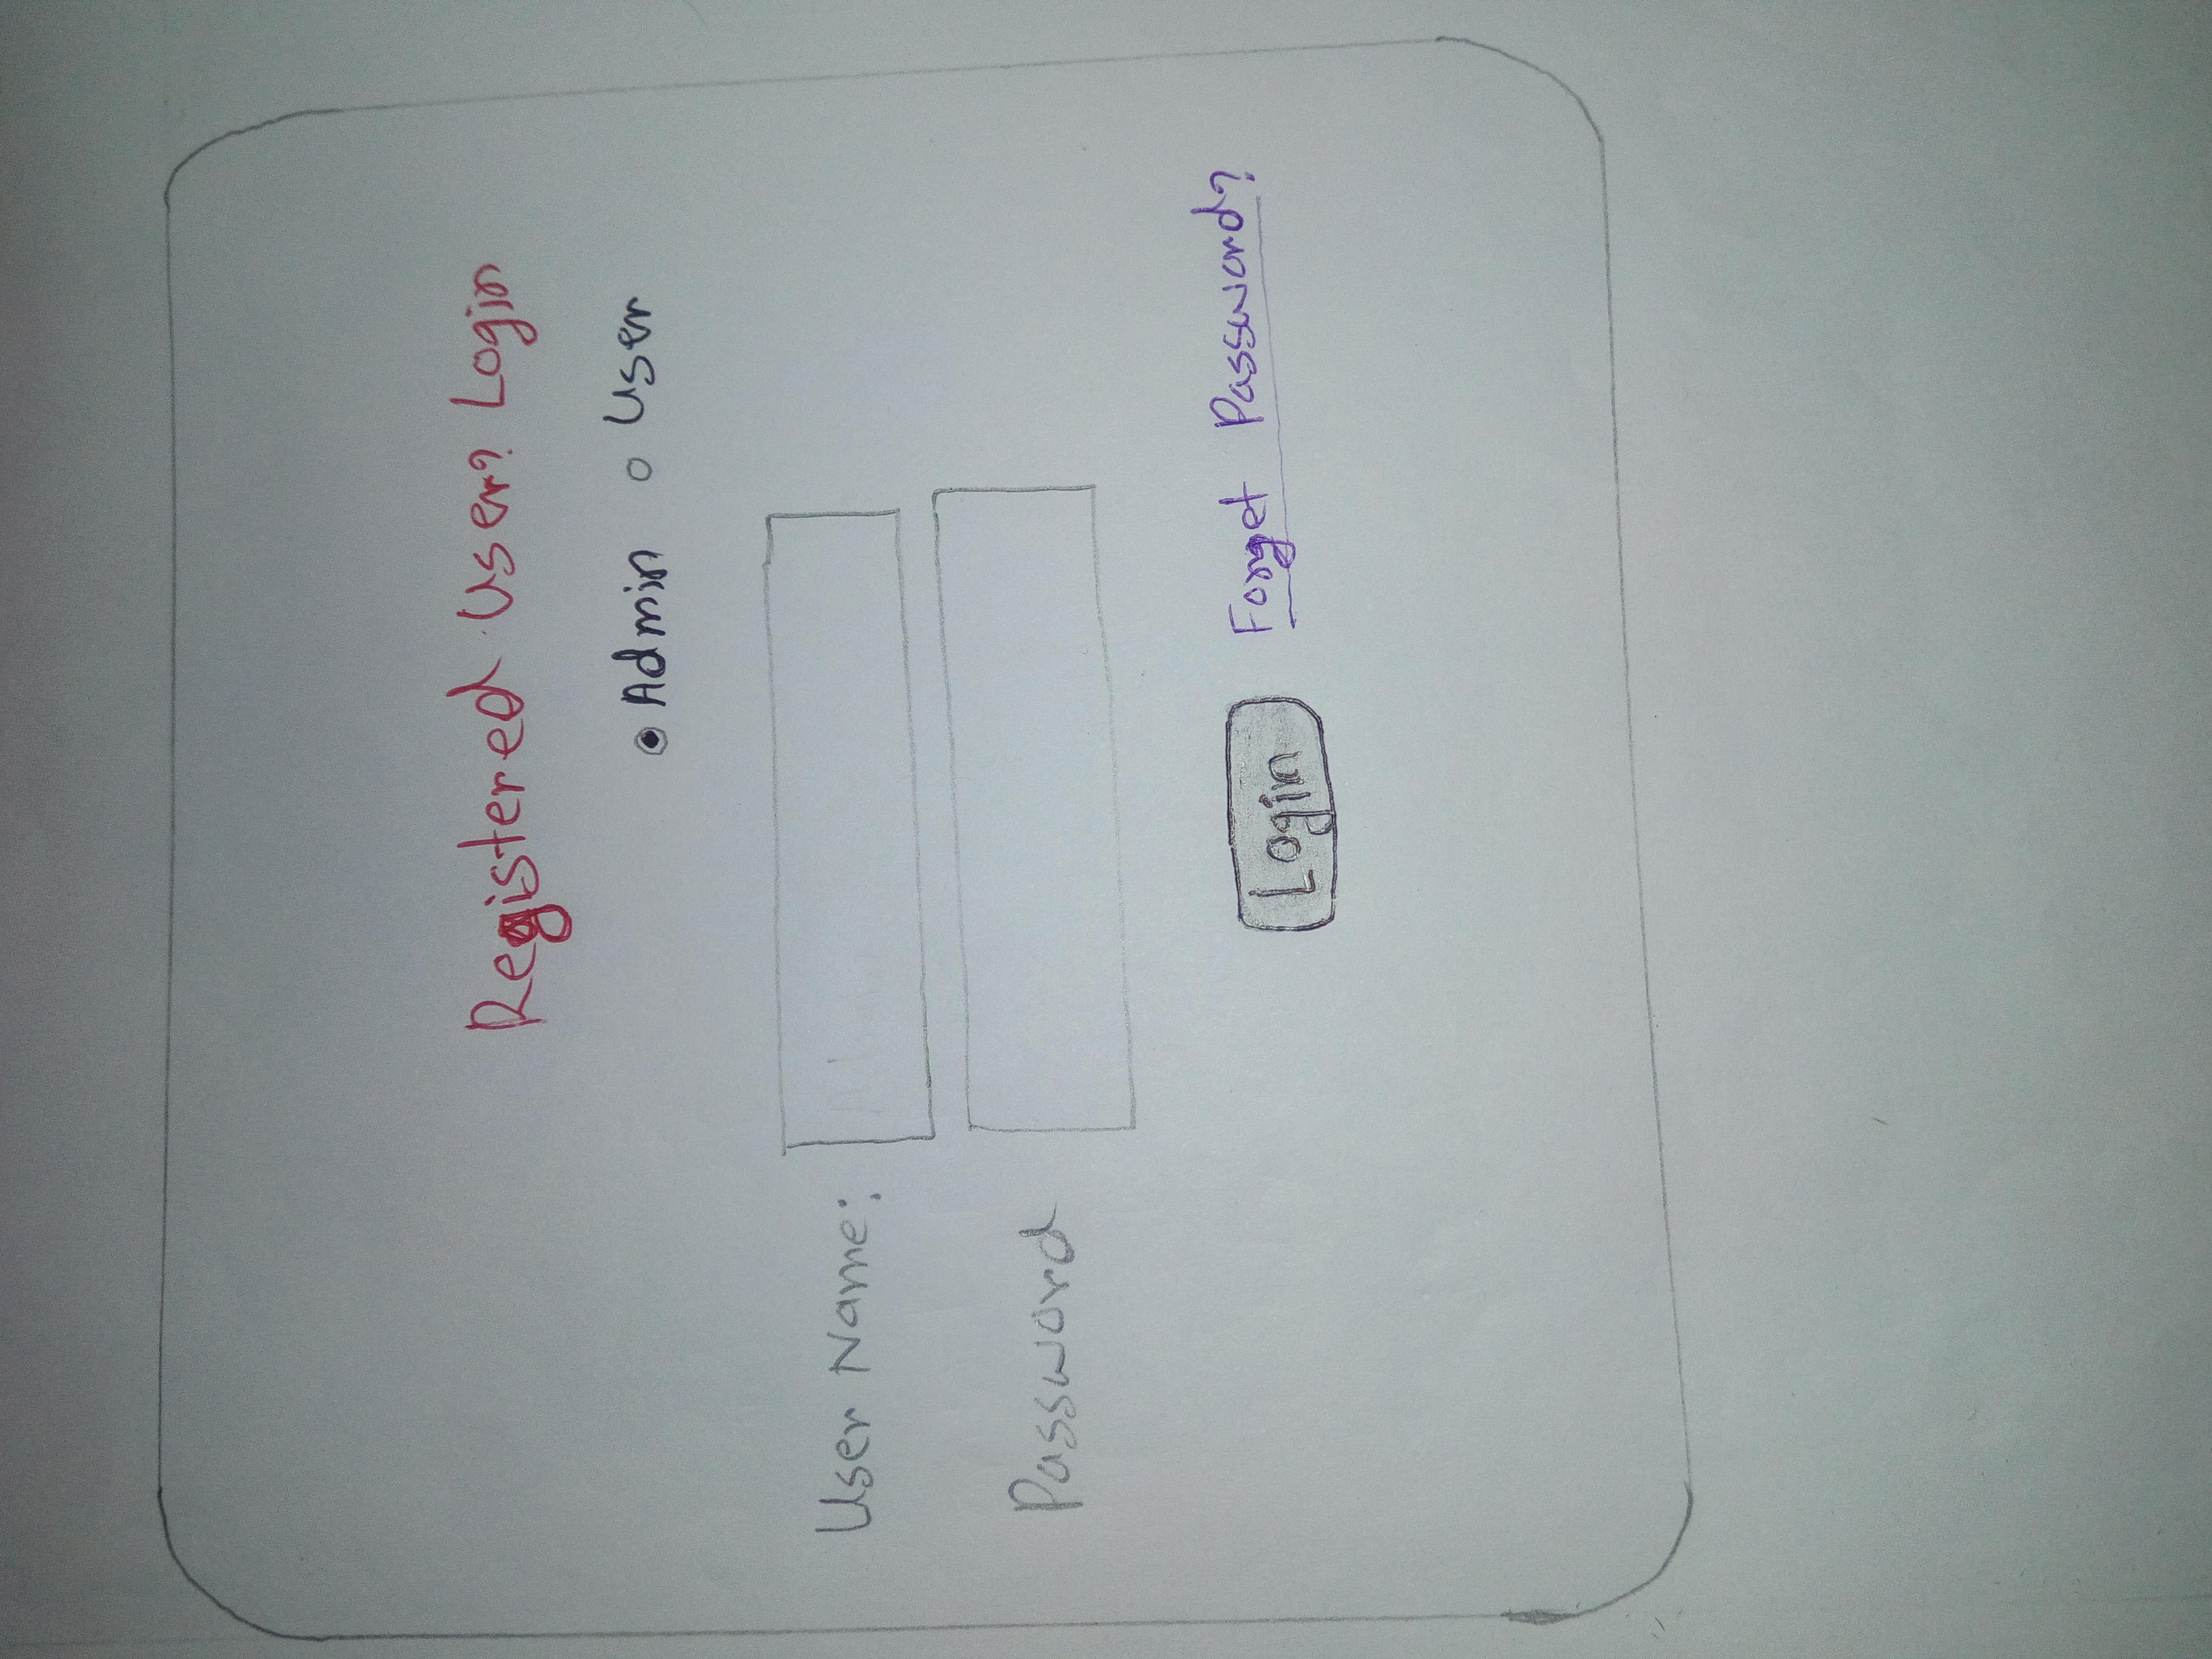 Registered User? Login
Admin User
User Name:
Password
Login Forget Password?